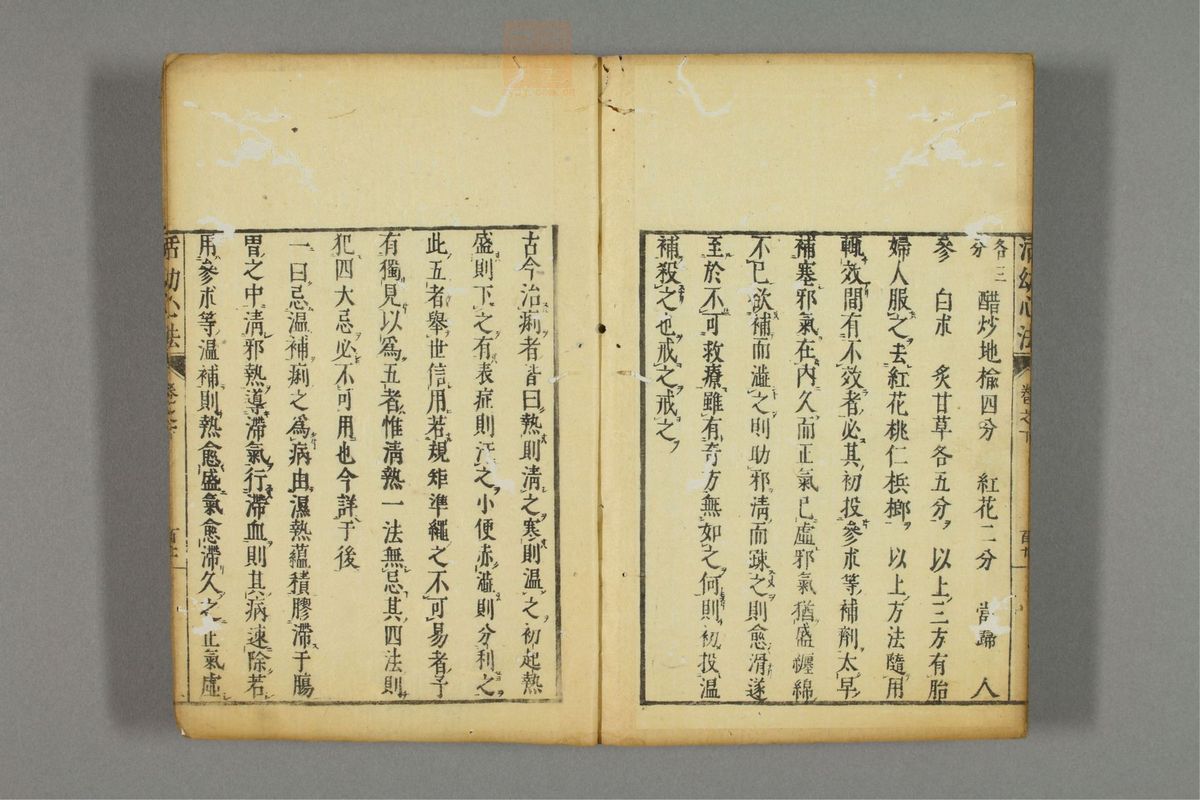 活幼心法 卷之下
各三分 醋炒地榆四分 紅花二分 當歸 人
參 白朮 炙甘草各五分 以上三方有胎
婦人服之去紅花桃仁梹榔 以上方法隨用
輒效間有不效者必其初投參朮等補劑太早
補塞邪氣在内久而正氣已虛邪氣猶盛纏綿
不已欲補而澁之則助邪清而疎之則愈滑遂
至於不可救療雖有奇方無如之何則初投温
補殺之也戒之戒之
古今治痢者皆曰熱則清之寒則温之初起熱
盛則下之有表症則汗之小便赤澁則分利之
此五者舉世信用若規矩準繩之不可易者予
有獨見以爲五者惟清熱一法無忌其四法則
犯四大忌必不可用也今詳于後
一曰忌温補痢之爲病由濕熱蘊積膠滯于腸
胃之中清邪熱導滯氣行滯血則其病速除若
用參朮等温補則熱愈盛氣愈滯久之正氣虛
活幼心法 卷之下